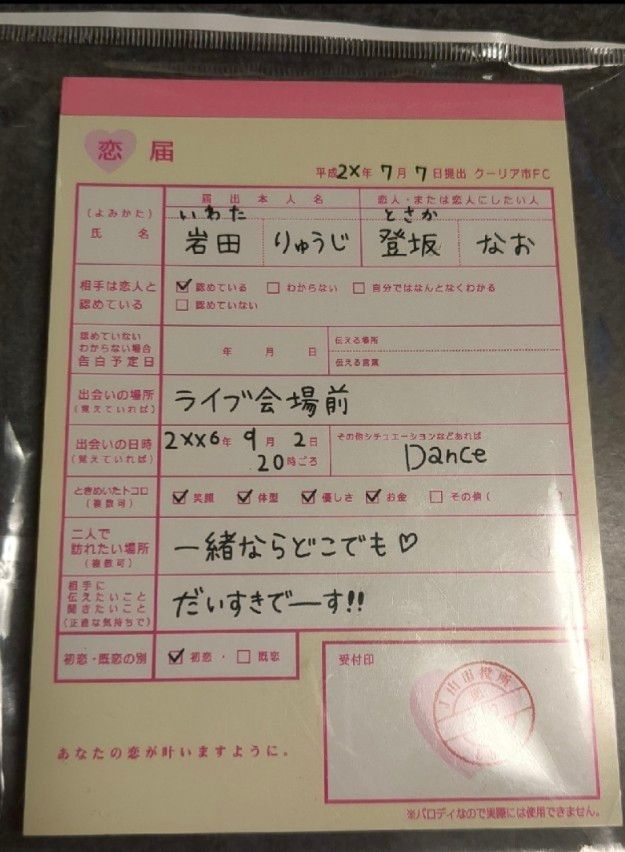 恋 届
平成2X年 7月 7日提出 クーリア市FC
届出本人名
恋人・または恋人にしたい人
(よみかた)
いわた
とさか
氏 名
岩田 りゅうじ
登坂 なお
相手は恋人と
認めている
☑ 認めている □ わからない □ 自分ではなんとなくわかる
□ 認めていない
認めていない
わからない場合
告白予定日
年 月 日
伝える場所
伝える言葉
出会いの場所
(覚えていれば)
ライブ会場前
出会いの日時
(覚えていれば)
2XX6年 9月 2日
20時ごろ
その他シチュエーションなどあれば
Dance
ときめいたトコロ
(複数可)
☑ 笑顔 ☑ 体型 ☑ 優しさ ☑ お金 □ その他( )
二人で
訪れたい場所
(複数可)
一緒ならどこでも♡
相手に
伝えたいこと
聞きたいこと
(正直な気持ちで)
だいすきでーす!!
初恋・既恋の別
☑ 初恋・□ 既恋
受付印
あなたの恋が叶いますように。
※パロディなので実際には使用できません。